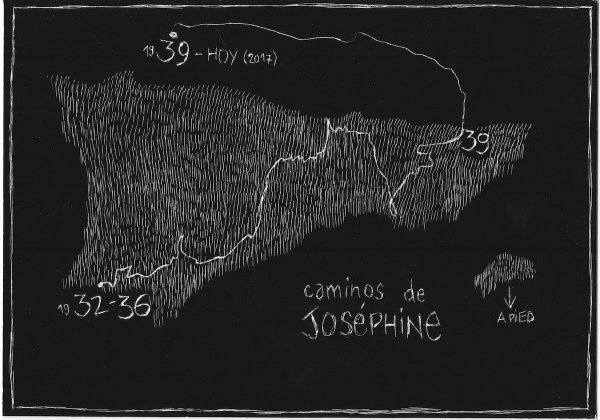 1939 - HOY (2017)
39
1932-36
caminos de
JOSÉPHINE
A PIED